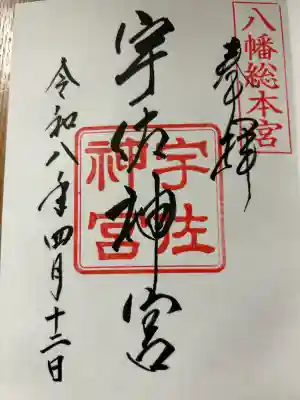 八幡総本宮
奉拝
宇佐神宮
宇佐
神宮
令和八年四月十二日